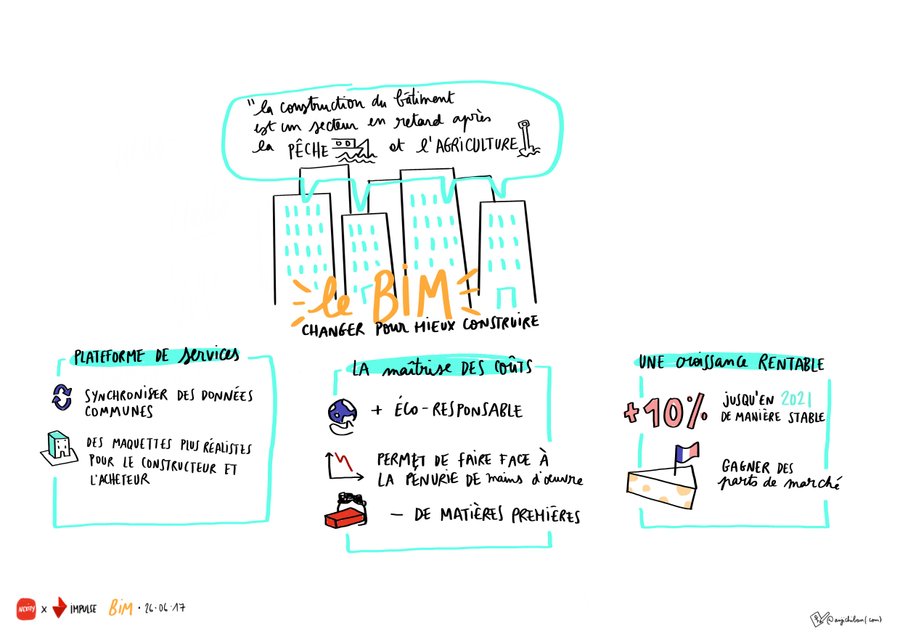 "la construction du bâtiment
est un secteur en retard après
la PÊCHE et l'AGRICULTURE
le BIM
CHANGER POUR MIEUX CONSTRUIRE
PLATEFORME DE services
SYNCHRONISER DES DONNÉES
COMMUNES
DES MAQUETTES PLUS RÉALISTES
POUR LE CONSTRUCTEUR ET
L'ACHETEUR
LA maîtrise DES COÛTS
+ ÉCO-RESPONSABLE
PERMET DE FAIRE FACE À
LA PÉNURIE DE mains d'œuvre
- DE MATIÈRES PREMIÈRES
UNE croissance RENTABLE
+10% JUSQU'EN 2021
DE MANIÈRE STABLE
GAGNER DES
parts de marché
x IMPULSE BIM · 26·06·17